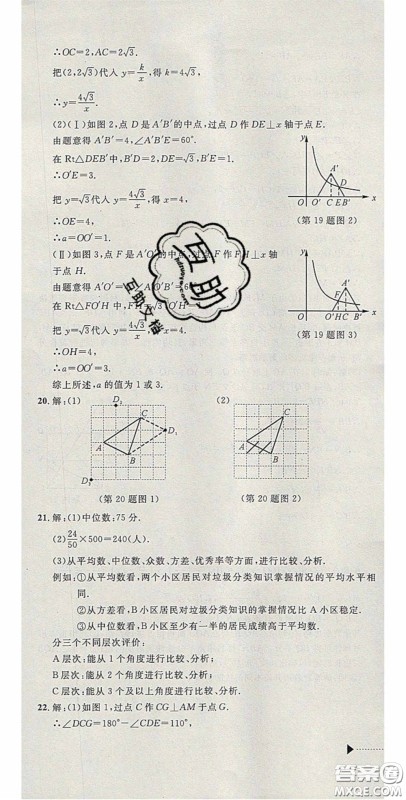 ∴OC=2,AC=2√3.
把(2,2√3)代入 y=k/x,得 k=4√3,
∴y=4√3/x.
(2)(Ⅰ)如图2,点 D 是 A′B′的中点,过点 D 作 DE⊥x 轴于点 E.
由题意得 A′B′=4,∠A′B′E=60°.
在 Rt△DEB′中,B′D=2,DE=√3,B′E=1.
∴O′E=3.
把 y=√3代入 y=4√3/x,得 x=4,
∴OE=4,
∴a=OO′=1.
(第19题图2)
(Ⅱ)如图3,点 F 是 A′O′的中点,过点 F 作 FH⊥x 轴
于点 H.
由题意得 A′O′=4,∠A′O′B′=60°.
在 Rt△FO′H 中,
把 y=√3代入 y=4√3/x,得 x=4,
∴OH=4,
∴a=OO′=3.
(第19题图3)
综上所述,a 的值为1或3.
20. 解:(1)
(2)
(第20题图1)
(第20题图2)
21. 解:(1)中位数:75分.
(2)24/50×500=240(人).
(3)从平均数、中位数、众数、方差、优秀率等方面,进行比较、分析.
例如:①从平均数看,两个小区居民对垃圾分类知识掌握情况的平均水平相
同.
②从方差看,B 小区居民对垃圾分类知识的掌握情况比 A 小区稳定.
③从中位数看,B 小区至少有一半的居民成绩高于平均数.
分三个不同层次评价:
A 层次:能从1个角度进行比较、分析;
B 层次:能从2个角度进行比较、分析;
C 层次:能从3个及以上角度进行比较、分析.
22. 解:(1)如图1,过点 C 作 CG⊥AM 于点 G.
∴∠DCG=180°-∠CDE=110°,
互助
互助文档
答案圈
MXQE.COM